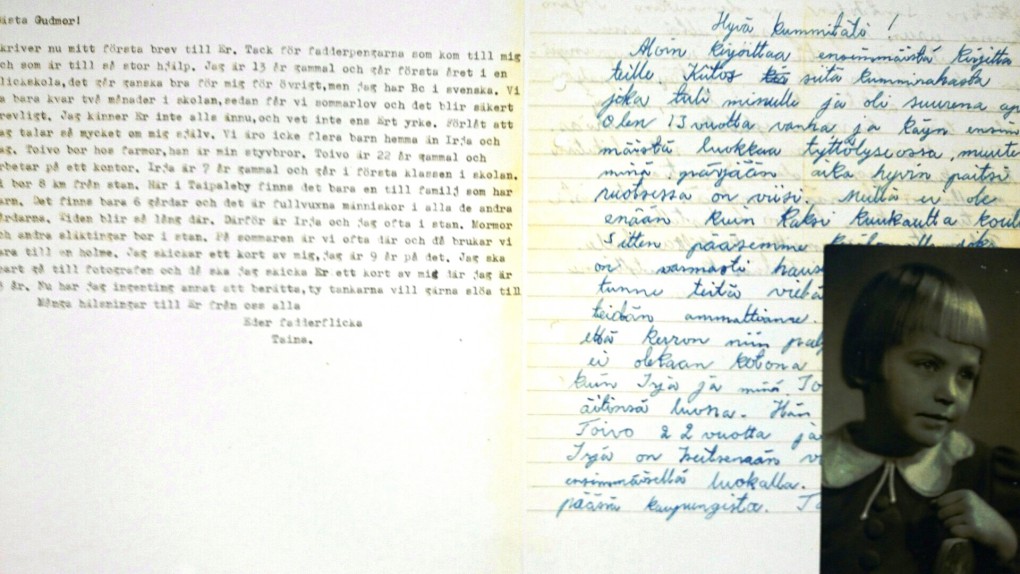 Gudmor!
kriver nu mitt första brev till Er. Tack för fadderpengarna som kom till mig
ch som är till så stor hjälp. Jag är 13 år gammal och går första året i en
lickskola,det går ganska bra för mig för övrigt,men jag har Bc i svenska. Vi
a bara kvar två månader i skolan,sedan får vi sommarlov och det blir säkert
revligt. Jag känner Er inte alls ännu,och vet inte ens Ert yrke. Förlåt att
ag talar så mycket om mig själv. Vi äro icke flera barn hemma än Irja och
ag. Toivo bor hos farmor,han är min styvbror. Toivo är 22 år gammal och
rbetar på ett kontor. Irja är 7 år gammal och går i första klassen i skolan.
i bor 8 km från stan. Här i Taipaleby finns det bara en till familj som har
arn. Det finns bara 6 gårdar och det är fullvuxna människor i alla de andra
årdarna. Tiden blir så lång där. Därför är Irja och jag ofta i stan. Mormor
ch andra släktingar bor i stan. På sommaren är vi ofta där och då brukar vi
ara till en holme. Jag skickar ett kort av mig,jag är 9 år på det. Jag ska
nart gå till fotografen och då ska jag skicka Er ett kort av mig där jag är
år. Nu har jag ingenting annat att berätta,ty tankarna vill gärna slös till
Många hälsningar till Er från oss alla
Eder fadderflicka
Taina.
Hyvä kummitäti!
Aloin kirjoittaa ensimmäistä kirjettä
teille Kiitos siitä kummirahasta
joka tuli minulle ja oli suurena ap
Olen 13 vuotta vanha ja käyn ensim
mäistä luokkaa tyttölyseossa, muuten
minä pärjään aika hyvin paitsi
ruotsissa on viisi. Meillä ei ole
enään kuin kaksi kuukautta koul
Sitten pääsemme
on varmasti haus
tunne teitä vielä
teidän ammattianne.
että kerron niin palj
ei olekaan kotona
kuin Irja ja minä. To
äitinsä luona. Hän
Toivo 22 vuotta ja
Irja on seitsemän v
ensimmäisellä luokalla.
päässä kaupungista. Ta